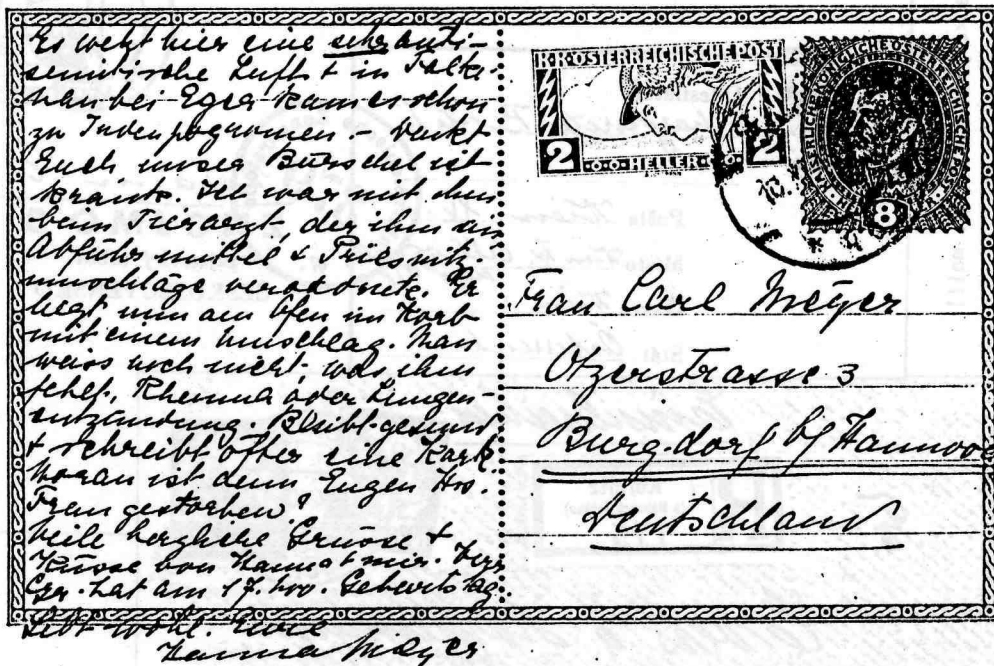 Es weht hier eine sehr anti-
semitische Luft & in Falke
nau bei Eger kam es schon
zu Judenpogromen – Denkt
Euch unser Burschel ist
krank. Ich war mit ihm
beim Tierarzt, der ihm an
Abführmittel & Priesnitz
umschläge verordnete. Er
liegt nun am Ofen im Korb
mit einem Umschlag. Man
weiss noch nicht, was ihm
fehlt, Rheuma oder Lungen-
entzündung. Bleibt gesund
& schreibt öfter eine Karte.
Woran ist denn Eugen
Frau gestorben?
Viele herzliche Grüsse &
Küsse von Hanna & mir.
hat am 17. Geburtstag
Lebt wohl. Eure
Hanna Meyer
K.K. ÖSTERREICHISCHE POST
2 HELLER 2
KAISERLICHE KÖNIGLICHE ÖSTERREICHISCHE POST
8
Frau Carl Meyer
Otzerstrasse 3
Burgdorf b/ Hannover
Deutschland